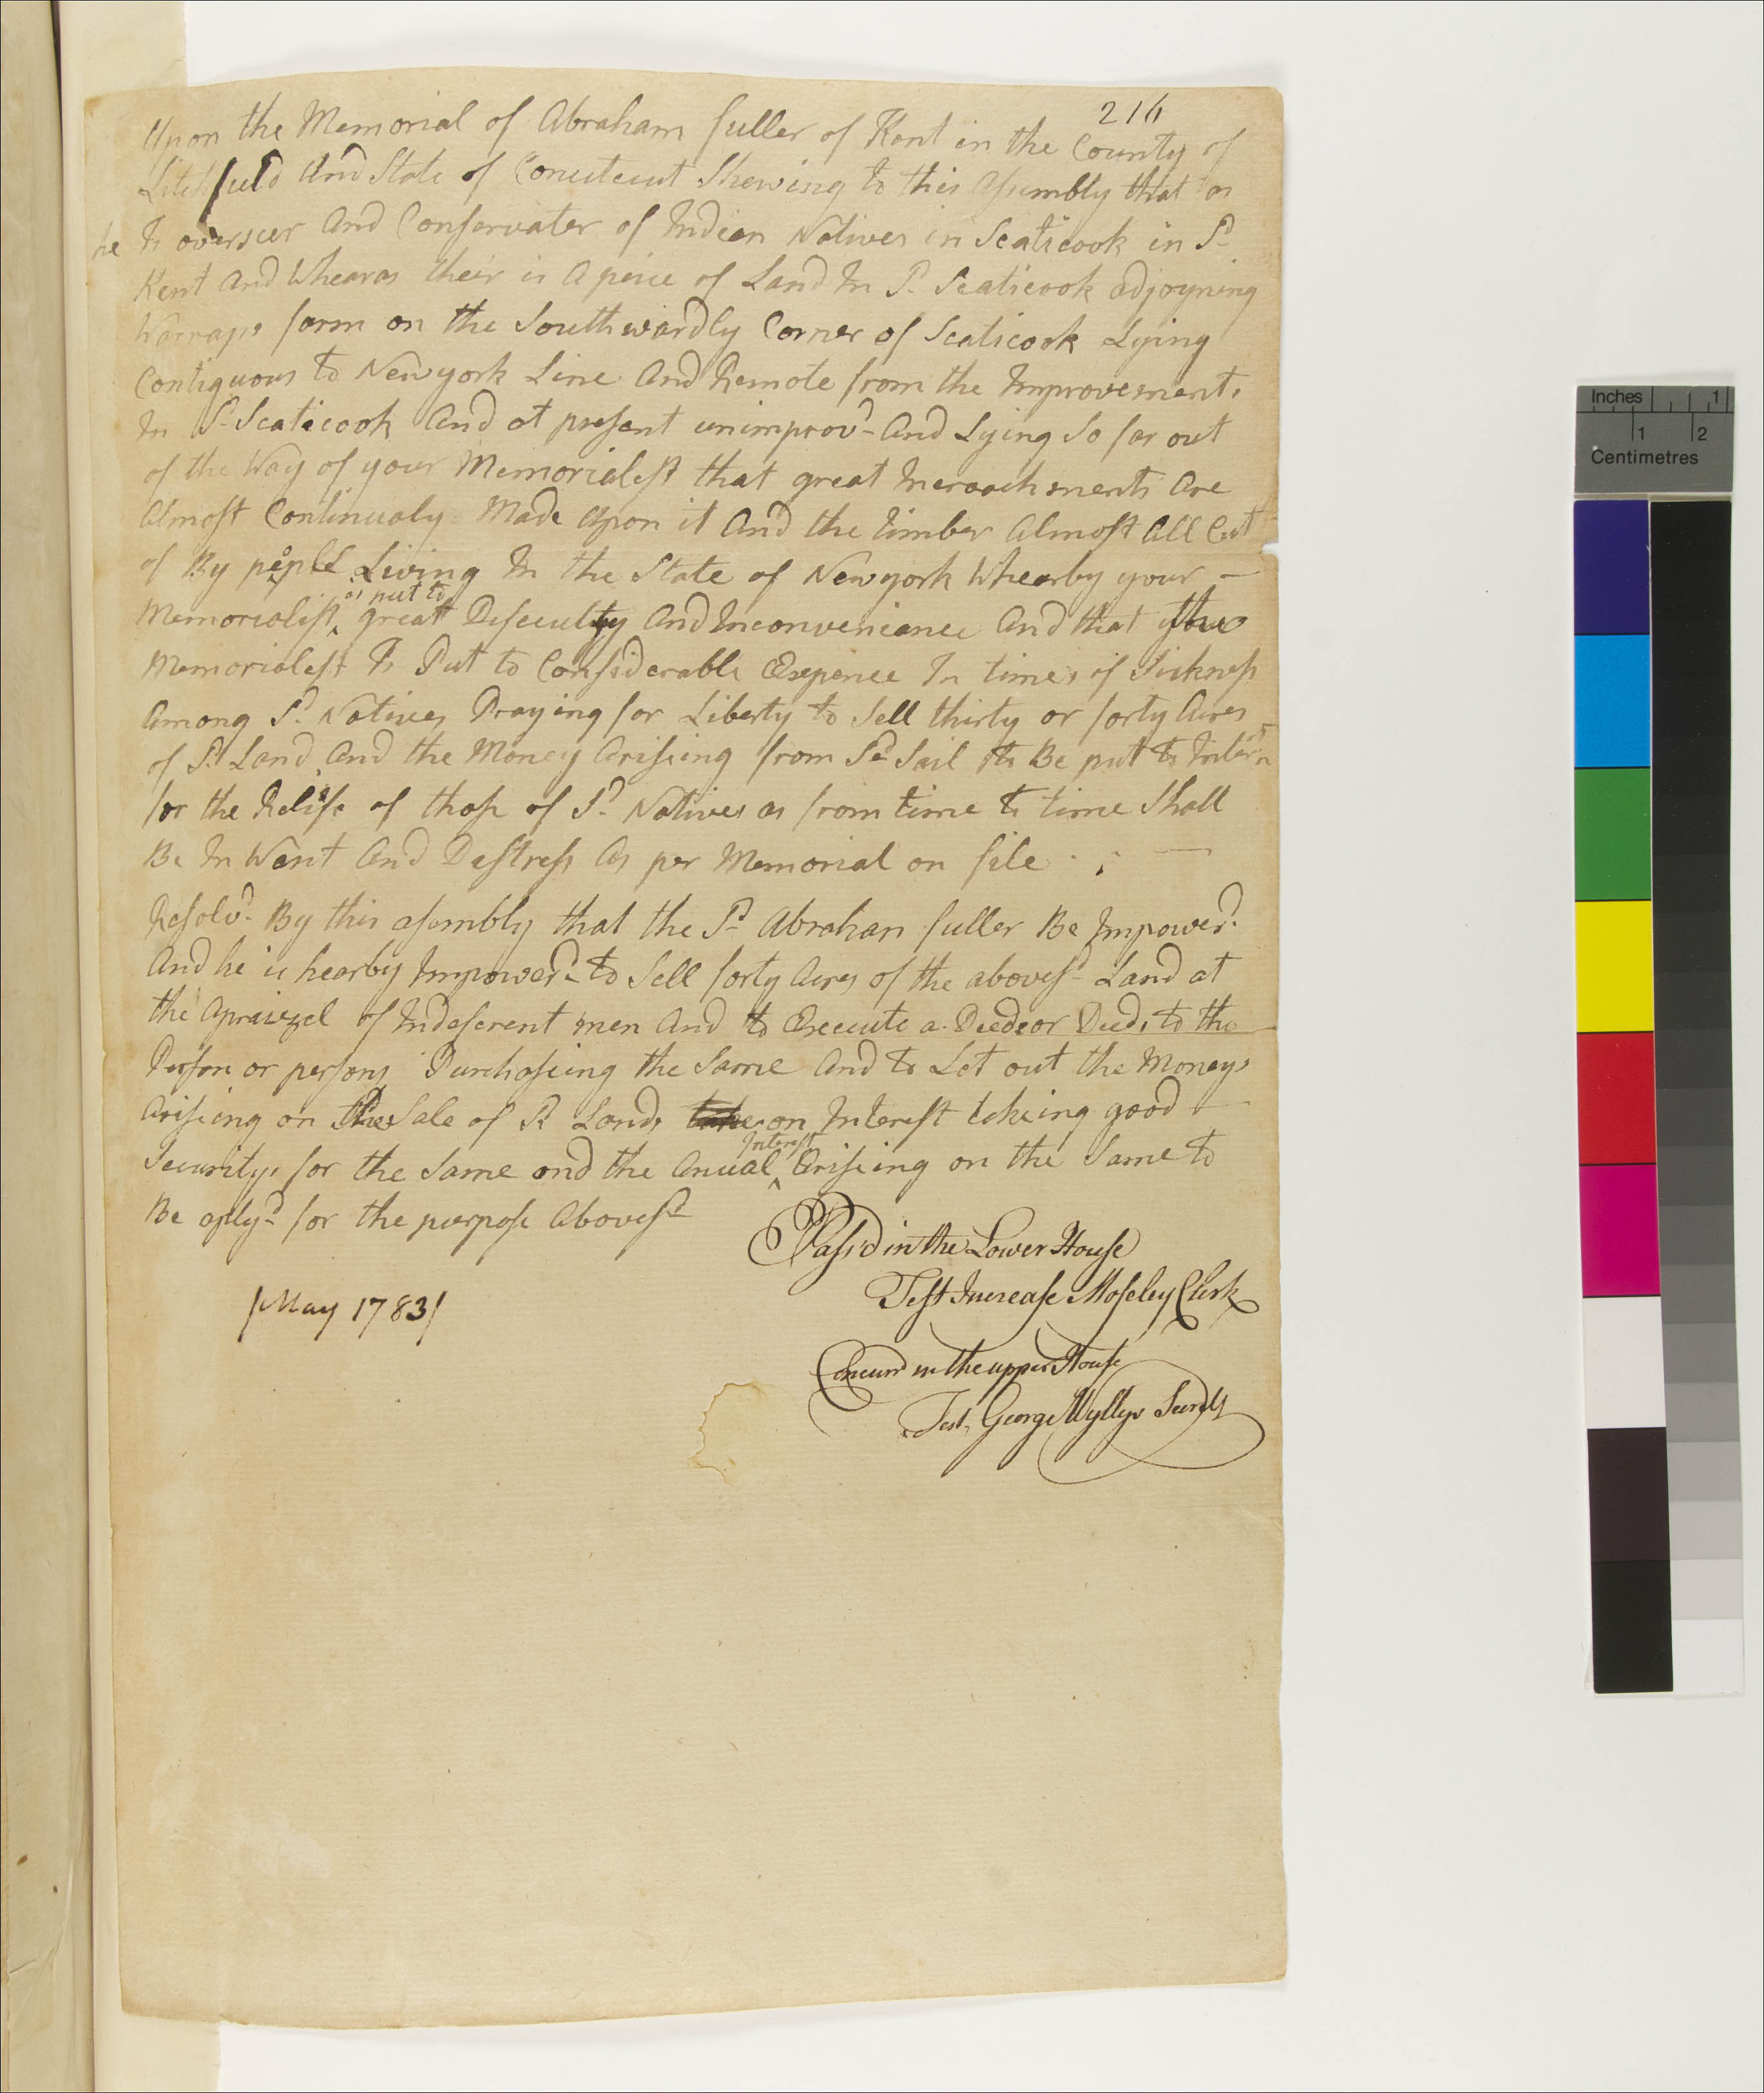 216
Upon the Memorial of Abraham fuller of Kent in the County of
Litchfield And State of Conecticut Shewing to this Assembly that as
he Is overseer And Conservater of Indian Natives in Scaticook in Sd
Kent And Whearas their is A peice of Land In Sd Scaticook adjoyning
Warrups farm on the Southwardly Corner of Scaticook Lying
Contiguous to Newyork Line And Remote from the Improvements
In Sd Scaticook And at present unimprovd And Lying So far out
of the Way of your Memorialist that great Incroachments Are
Almost Continualy Made Upon it And the timber Almost All Cut
of By peple Living In the State of Newyork Whearby your —
Memorialist is put to great Dificulty And Inconvenience And that your
Memorialest Is Put to Considerable Expence In times of Sickness
Among Sd Natives Praying for Liberty to Sell thirty or forty Acres
of Sd Land And the Money Arisieing from Sd Sail to Be put to
for the Relife of those of Sd Natives as from time to time Shall
Be In Want And Destress As per Memorial on file
Resolvd By this asembly that the Sd Abraham fuller Be Impowerd
And he is hearby Impowerd to Sell forty Acres of the abovesd Land at
the Apraizel of Indeferent men And to Execute a Deed or Deeds to the
Person or persons Purchaseing the Same And to Let out the Moneys
Arisieing on the Sale of Sd Lands on Interest takeing good
Securitys for the Same and the Anual Interest Ariseing on the Same to
Be aplyd for the purpose Abovesd
Pass'd in the Lower House
Test Increase Moseley Clerk
[May 1783]
Concurrd in the upper House
Test, George Wyllys Secrety
Inches 1
1 2
Centimetres